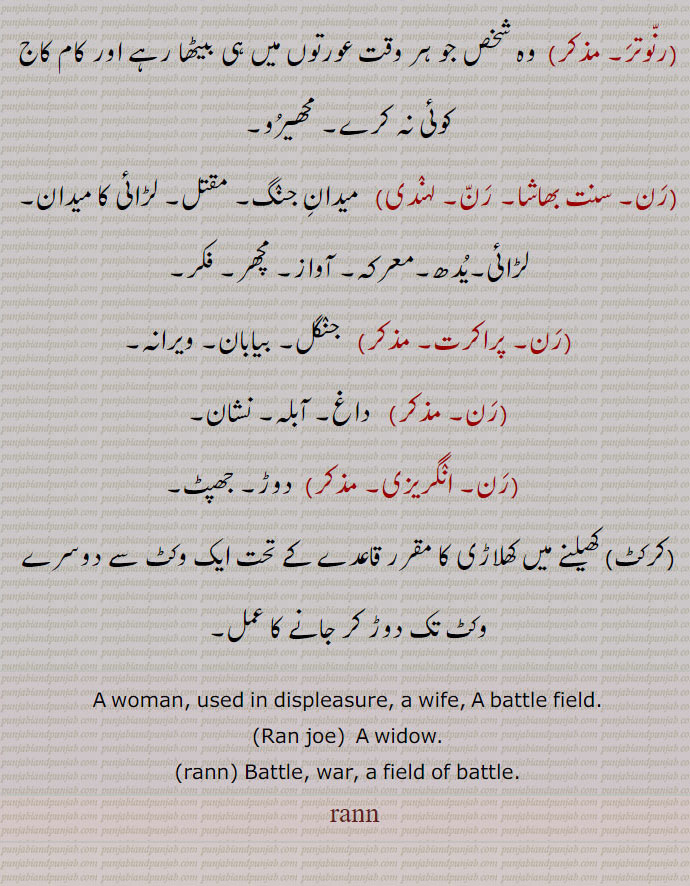 (رنّوترَ۔ مذکر) وہ شخص جو ہر وقت عورتوں میں ہی بیٹھا رہے اور کام کاج
کوئی نہ کرے۔ مچھیرُو۔
(رَن۔ سنت بھاشا۔ رَنّ۔ لہنٛدی) میدانِ جنٛگ۔ مقتل۔ لڑائی کا میدان۔
لڑائی۔یُدھ۔معرکہ۔ آواز۔ مچھر۔ فکر۔
(رَن۔ پراکرت۔ مذکر) جنٛگل۔ بیابان۔ ویرانہ۔
(رَن۔ مذکر) داغ۔ آبلہ۔ نشان۔
(رَن۔ انٛگریزی۔ مذکر) دوڑ۔ جھپٹ۔
(کرکٹ) کھیلنے میں کھلاڑی کا مقرر قاعدے کے تحت ایک وکٹ سے دوسرے
وکٹ تک دوڑ کر جانے کا عمل۔
A woman, used in displeasure, a wife, A battle field.
(Ran joe) A widow.
(rann) Battle, war, a field of battle.
rann